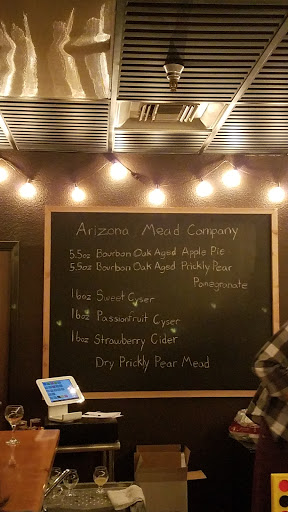 Arizona Mead Company
5.5oz Bourbon Oak Aged Apple Pie
5.5oz Bourbon Oak Aged Prickly Pear
Pomegranate
16oz Sweet Cyser
16oz Passionfruit Cyser
16oz Strawberry Cider
Dry Prickly Pear Mead